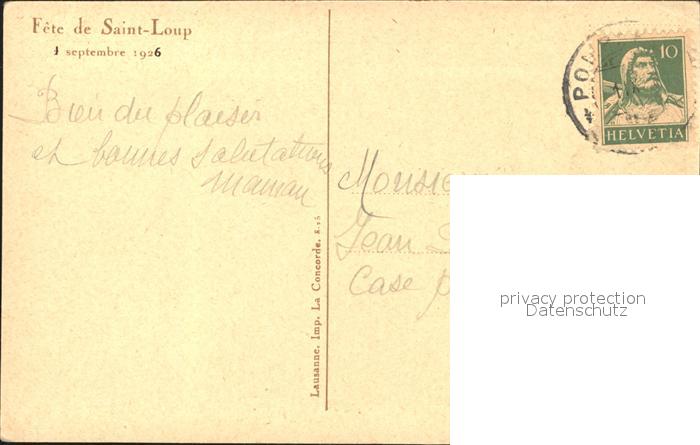 Fête de Saint-Loup
1 septembre 1926
Bien du plaisir
et bonnes salutations
maman
Lausanne, Imp. La Concorde.
10
HELVETIA
PO
Monsie
Jean
Case p
privacy protection
Datenschutz